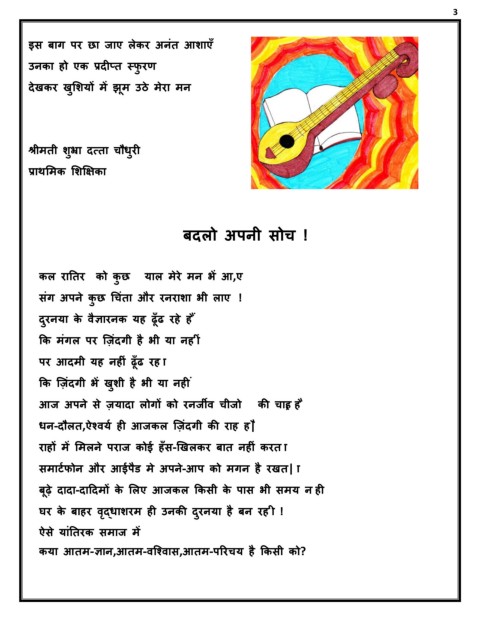 3
इस बाग पर छा जाए लेकर अनंत आशाएँ
उनका हो एक प्रदीप्त स्फुरण
देखकर खुशियों में झूम उठे मेरा मन
श्रीमती शुभ्रा दत्ता चौधुरी
प्राथमिक शिक्षिका
बदलो अपनी सोच !
कल रातिर को कुछ याल मेरे मन भें आ,ए
संग अपने कुछ चिंता और रनराशा भी लाए !
दुरनया के वैज्ञारनक यह ढूँढ रहे हैं
कि मंगल पर ज़िंदगी है भी या नहीं
पर आदमी यह नहीं ढूँढ रहा
कि ज़िंदगी भें खुशी है भी या नहीं
आज अपने से ज़यादा लोगों को रनर्जीव चीजो की चाह है
धन-दौलत,ऐश्वर्य ही आजकल ज़िंदगी की राह है|
राहों में मिलने पराज कोई हँस-खिलकर बात नहीं करता
समार्टफोन और आईपैड मे अपने-आप को मगन है रखता|
बूढ़े दादा-दादिमों के लिए आजकल किसी के पास भी समय नही
घर के बाहर वृद्धाशरम ही उनकी दुरनया है बन रही !
ऐसे यांतिरक समाज में
कया आतम-ज्ञान,आतम-वश्विास,आतम-परिचय है किसी को?